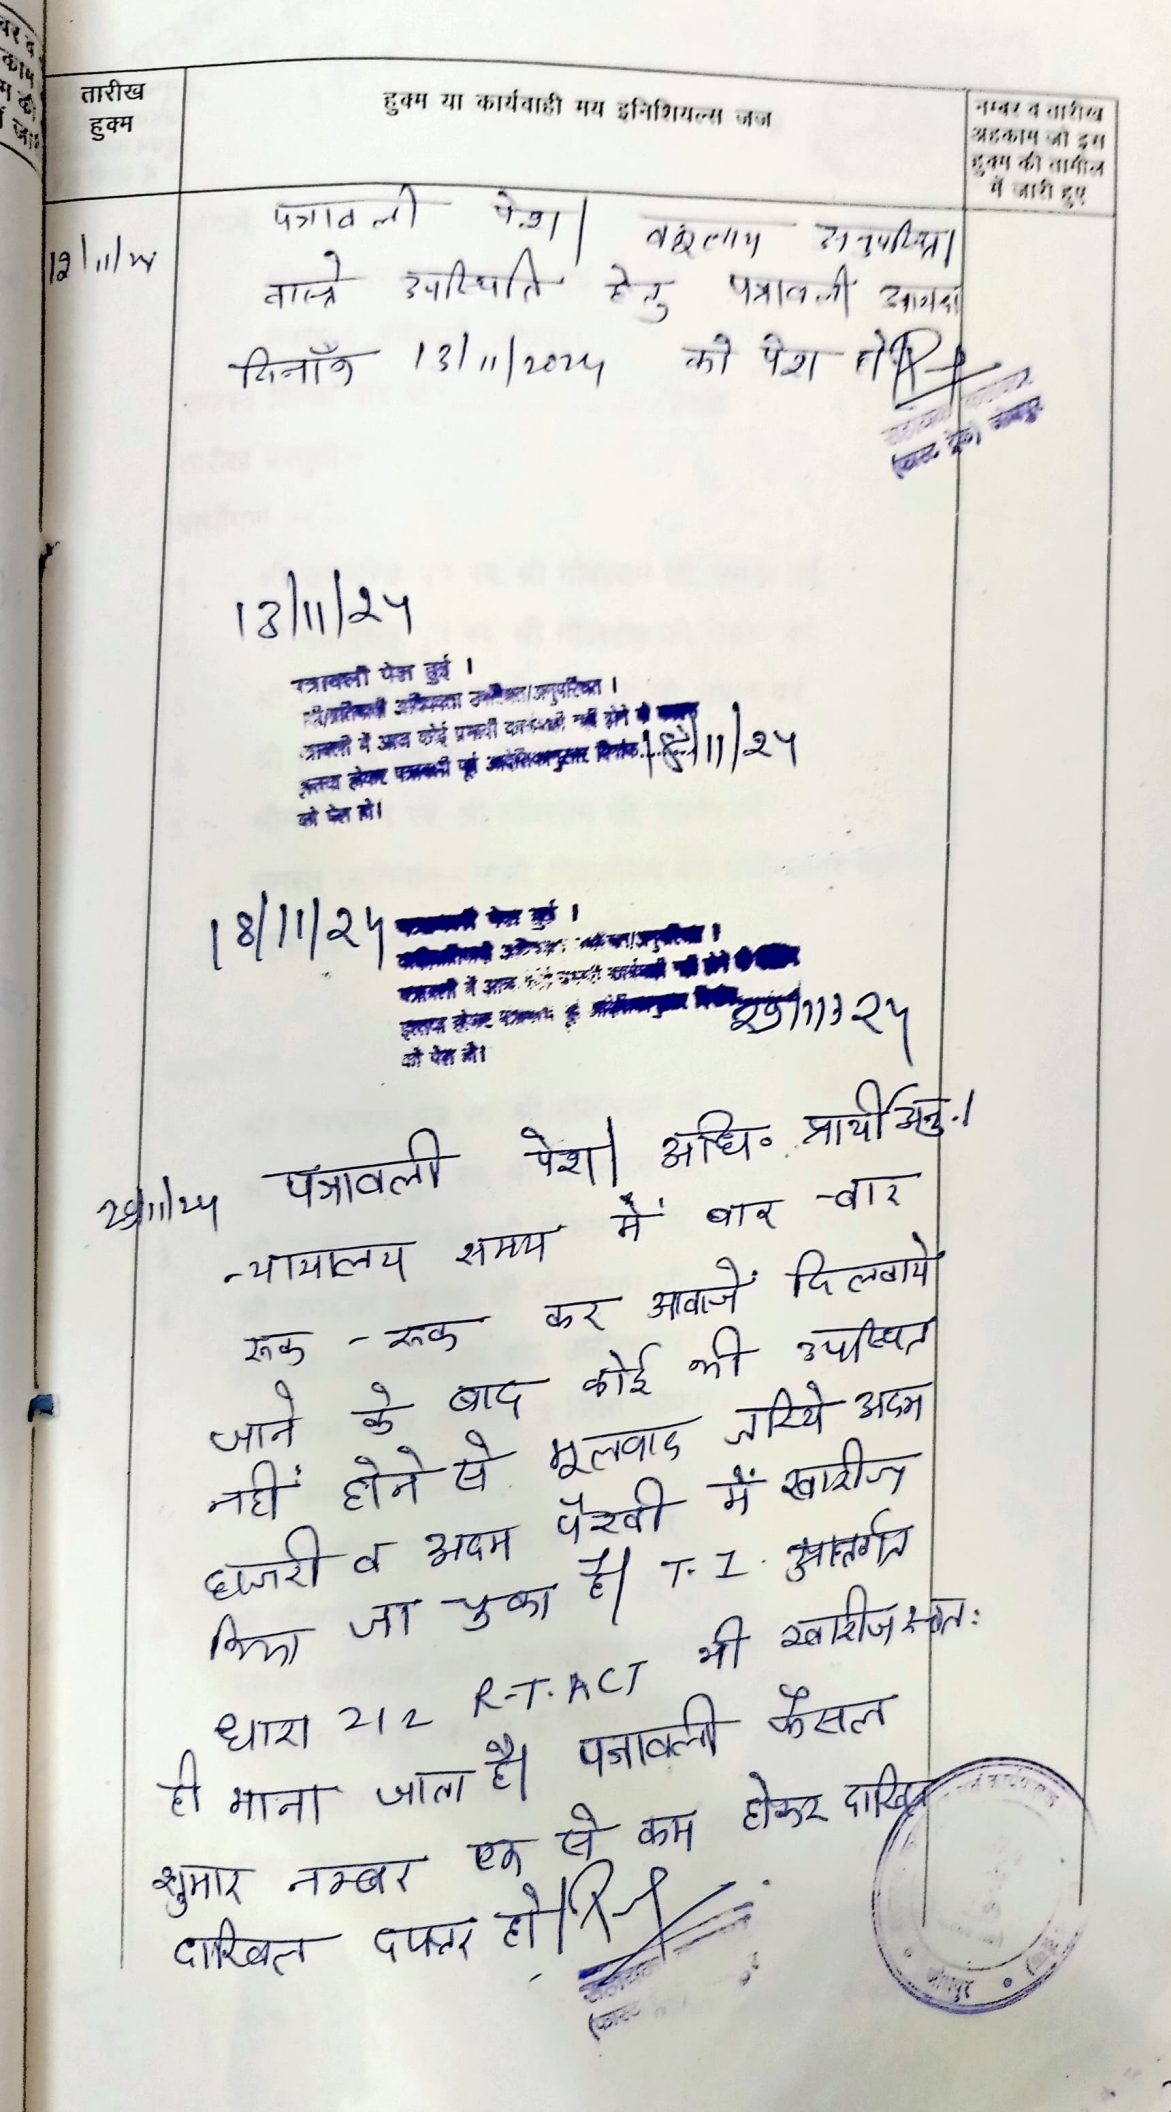 तारीख
हुक्म
हुक्म या कार्यवाही मय इनिशियल्स जज
नम्बर व तारीख
अहकाम जो इस
हुक्म की तामील
में जारी हुए
12/11/24
पत्रावली पेश। वकुलाय अनुपस्थित।
वास्ते उपस्थिति हेतु पत्रावली
दिनाँक 13/11/2024 को पेश हो।
(फास्ट ट्रेक) जोधपुर
13/11/24
पत्रावली पेश हुई ।
अधिवक्ता उपस्थित/अनुपस्थित ।
पत्रावली में आज कोई प्रभावी कार्यवाही नहीं होने से
होकर पत्रावली पूर्व आदेशिकानुसार दिनांक 18/11/24
को पेश हो।
18/11/24
पत्रावली पेश हुई ।
अनुपस्थित ।
पत्रावली में आज कोई प्रभावी कार्यवाही नहीं होने से
होकर पूर्व आदेशिकानुसार
को पेश हो।
पत्रावली पेश। अधि॰ प्रार्थी अनु.।
न्यायालय समय में बार -बार
रूक - रूक कर आवाजें दिलवाये
जाने के बाद कोई भी उपस्थित
नहीं होने से मूलवाद जरिये अदम
हाजरी व अदम पैरवी में खारीज
किया जा चुका है। T.I. अन्तर्गत
धारा 212 R.T.ACT भी खारीज स्वत:
ही माना जाता है। पत्रावली फैसल
शुमार नम्बर एक से कम होकर दाखिल
दाखिल दफ्तर हो।
(फास्ट
जोधपुर